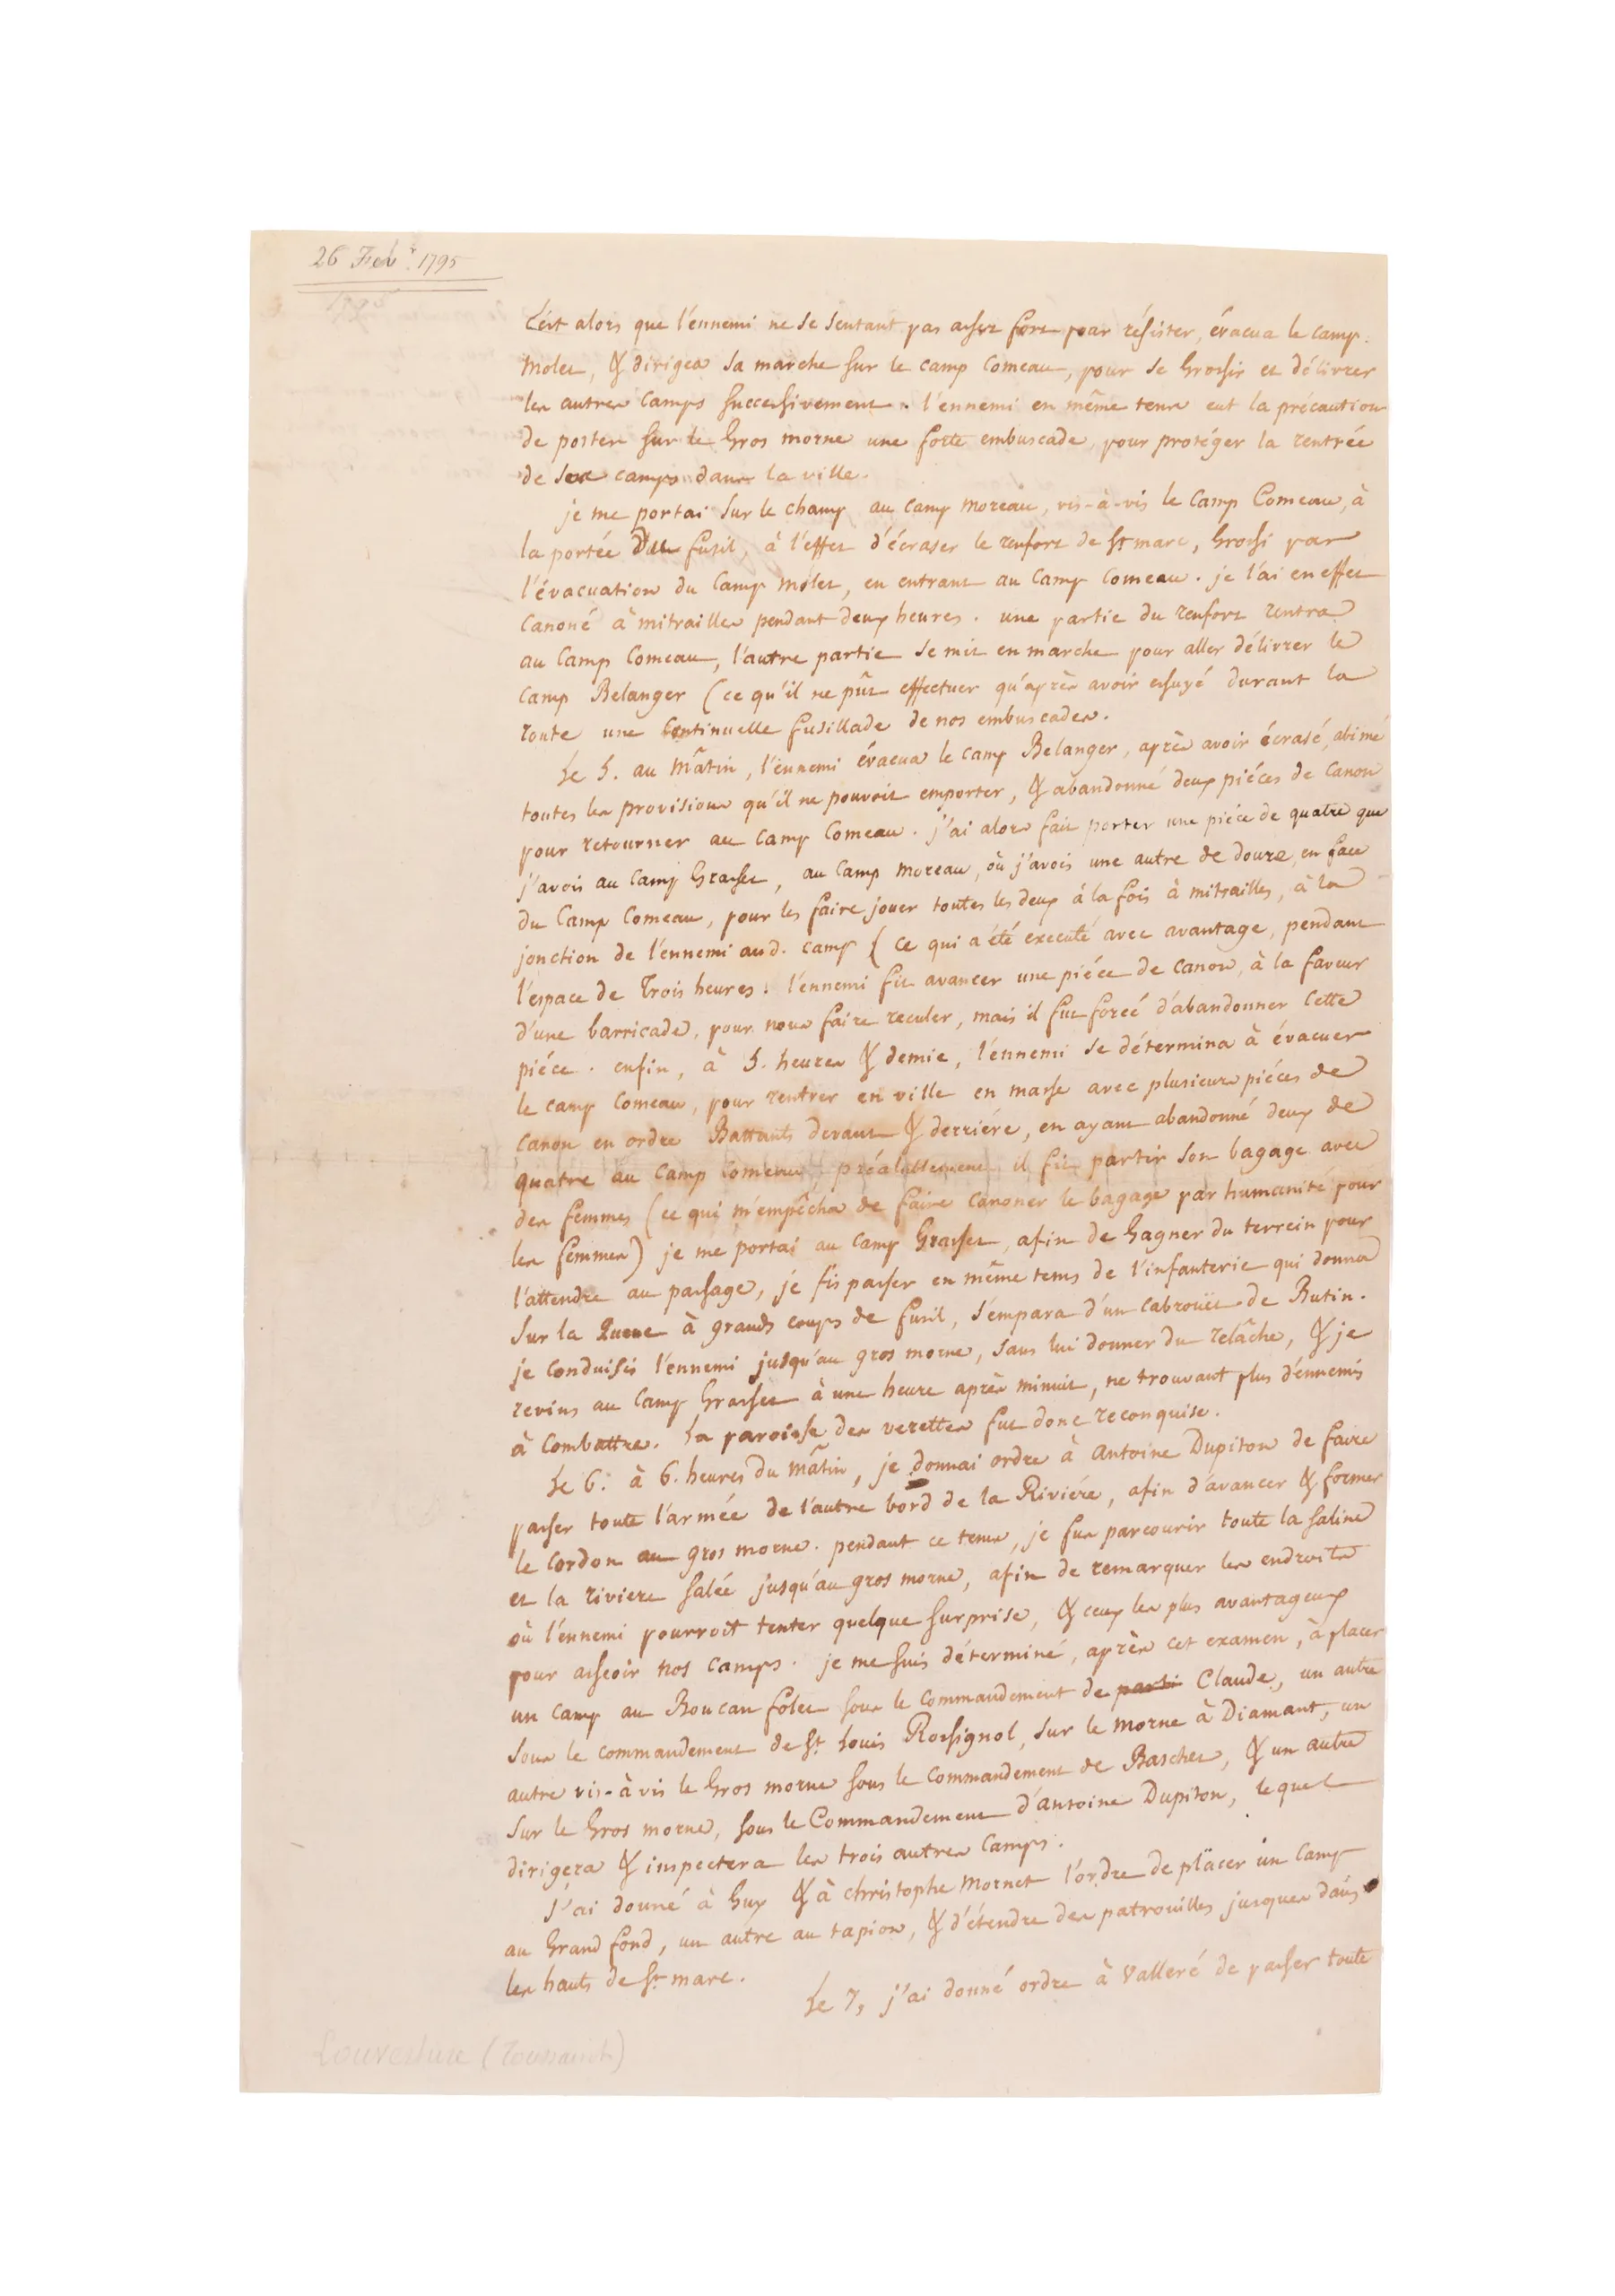 26 Fevr. 1795
C'est alors que l'énnemi ne se sentant pas assez fort pour résister, évacua le camp
Molet, & dirigea sa marche sur le camp Comeau, pour se Grossir et délivrer
les autres Camps successivement. l'ennemi en même tems eut la précaution
de poster sur le Gros morne une forte embuscade, pour protéger la rentrée
de ses camps dans la ville.
je me portai sur le champ au camp Moreau, vis-à-vis le Camp Comeau, à
la portée du fusil, à l'effet d'écraser le renfort de St marc, Grossi par
l'évacuation du Camp Molet, en entrant au Camp Comeau. je l'ai en effet
Canoné à mitrailles pendant deux heures. une partie du renfort rentra
au Camp Comeau, l'autre partie se mit en marche pour aller délivrer le
Camp Belanger (ce qu'il ne pût effectuer qu'après avoir essuyé durant la
route une Continuelle fusillade de nos embuscades.
Le 5. au Mâtin, l'ennemi évacua le camp Belanger, après avoir écrasé, abimé
toutes les provisions qu'il ne pouvoit emporter, & abandonné deux piéces de canon
pour retourner au Camp Comeau. j'ai alors fait porter une piéce de quatre que
j'avois au Camp Grasset, au Camp Moreau, où j'avois une autre de douze, en face
du Camp Comeau, pour les faire jouer toutes les deux à la fois à mitrailles, à la
jonction de l'énnemi aud. camp (ce qui a été executé avec avantage, pendant
l'espace de Trois heures. l'énnemi fit avancer une piéce de canon, à la faveur
d'une barricade, pour nous faire reculer, mais il fut forcé d'abandonner cette
piéce. enfin, à 5. heures & demie, l'énnemi se détermina à évacuer
le camp Comeau, pour rentrer en ville en masse avec plusieurs piéces de
Canon en ordre Battants devant & derriére, en ayant abandonné deux de
quatre au Camp Comeau, préalablement il fit partir son bagage avec
des femmes (ce qui m'empêcha de faire canoner le bagage par humanité pour
les femmes) je me portai au camp Grasset, afin de Gagner du terrein pour
l'attendre au passage, je fis passer en même tems de l'infanterie qui donna
sur la Queue à grands coups de fusil, s'empara d'un Cabrouët de Butin.
je conduisis l'ennemi jusqu'au gros morne, sans lui donner du relâche, & je
revins au Camp Grasset à une heure après minuit, ne trouvant plus d'énnemis
à Combattre. La paroisse des verettes fut donc reconquise.
Le 6. à 6. heures du mâtin, je donnai ordre à Antoine Dupiton de faire
passer toute l'armée de l'autre bord de la Riviére, afin d'avancer & former
le Cordon au gros morne. pendant ce tems, je fus parcourir toute la saline
et la riviere salée jusqu'au gros morne, afin de remarquer les endroits
où l'énnemi pourroit tenter quelque surprise, & ceux les plus avantageux
pour asseoir nos camps. je me suis déterminé, après cet examen, à placer
un camp au Boucan folet sous le commandement de Claude, un autre
sous le commandement de St Louis Rossignol, sur le Morne à Diamant, un
autre vis-à vis le Gros morne sous le commandement de Baschet, & un autre
sur le Gros morne, sous le Commandement d'Antoine Dupiton, lequel
dirigera & inspectera les trois autres Camps.
J'ai donné à Guy & à christophe Mornet l'ordre de placer un Camp
au Grand fond, un autre au tapion, & d'étendre des patrouilles jusques dans
les hauts de St marc.
Le 7, j'ai donné ordre à Valleré de passer toute
Louverture (Toussaint)